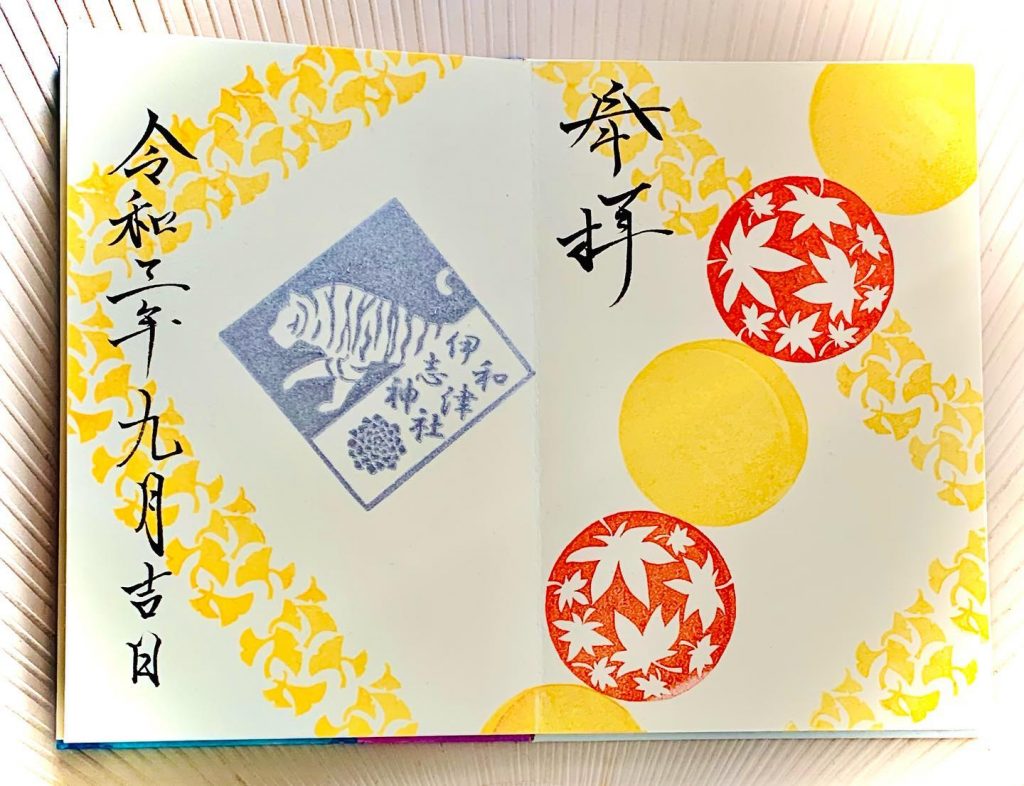 奉拝
伊和
志津
神社
令和三年九月吉日